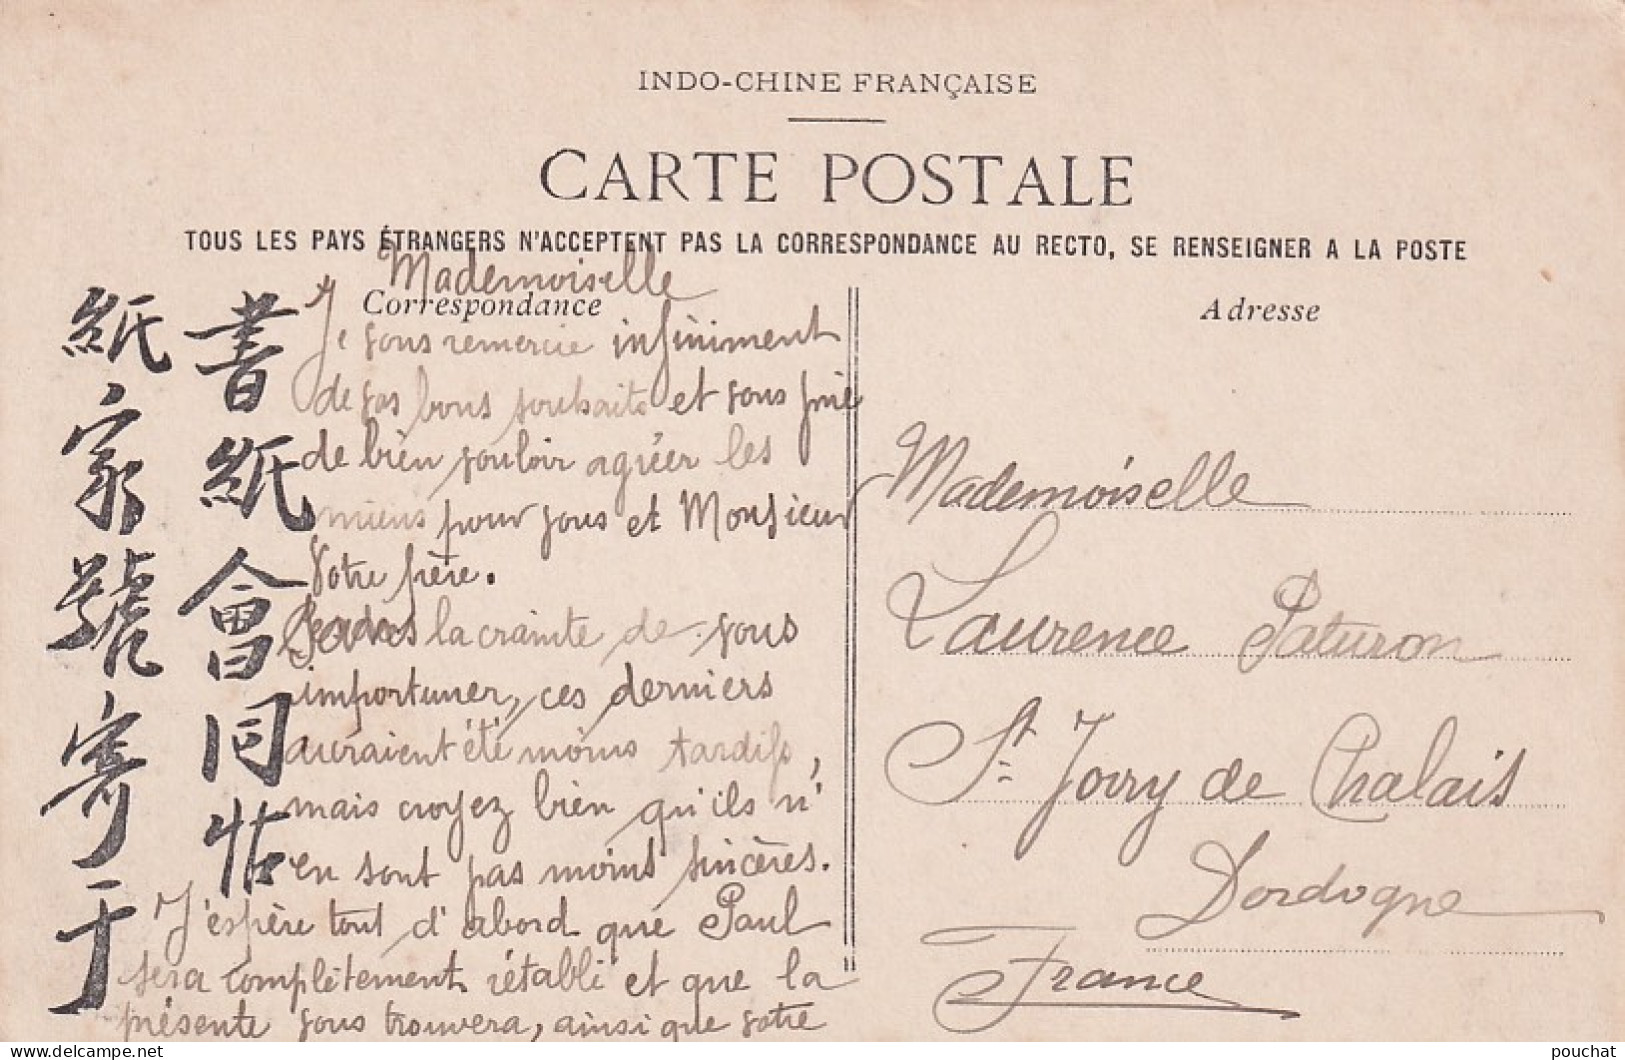 INDO-CHINE FRANÇAISE
CARTE POSTALE
TOUS LES PAYS ÉTRANGERS N'ACCEPTENT PAS LA CORRESPONDANCE AU RECTO, SE RENSEIGNER A LA POSTE
Correspondance
Mademoiselle
Je vous remercie infiniment
de vos bons souhaits et vous prie
de bien vouloir agréer les
miens pour vous et Monsieur
Votre frère.
la crainte de vous
importuner, ces derniers
auraient été moins tardifs,
mais croyez bien qu'ils n'
en sont pas moins sincères.
J'espère tout d'abord que Paul
sera complètement rétabli et que la
présente vous trouvera, ainsi que votre
書紙會同帖
紙家號寄于
Adresse
Mademoiselle
Laurence Paturon
St Jorry de Chalais
Dordogne
France
delcampe.net
pouchat